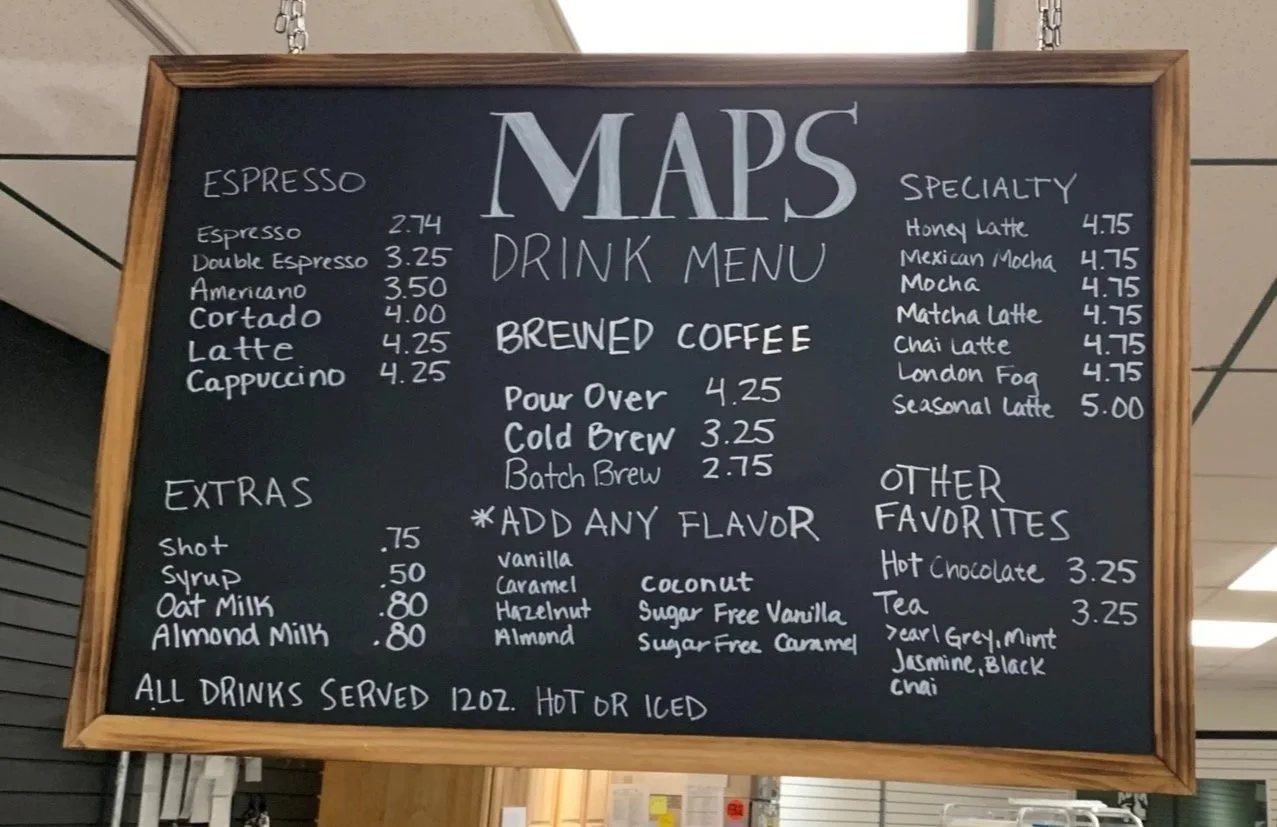 MAPS
DRINK MENU
ESPRESSO
Espresso 2.74
Double Espresso 3.25
Americano 3.50
Cortado 4.00
Latte 4.25
Cappuccino 4.25
EXTRAS
Shot .75
Syrup .50
Oat Milk .80
Almond Milk .80
BREWED COFFEE
Pour Over 4.25
Cold Brew 3.25
Batch Brew 2.75
*ADD ANY FLAVOR
Vanilla
Caramel
Hazelnut
Almond
Coconut
Sugar Free Vanilla
Sugar Free Caramel
SPECIALTY
Honey Latte 4.75
Mexican Mocha 4.75
Mocha 4.75
Matcha Latte 4.75
Chai Latte 4.75
London Fog 4.75
Seasonal Latte 5.00
OTHER
FAVORITES
Hot Chocolate 3.25
Tea 3.25
>earl Grey, Mint
Jasmine, Black
Chai
ALL DRINKS SERVED 12OZ. HOT OR ICED